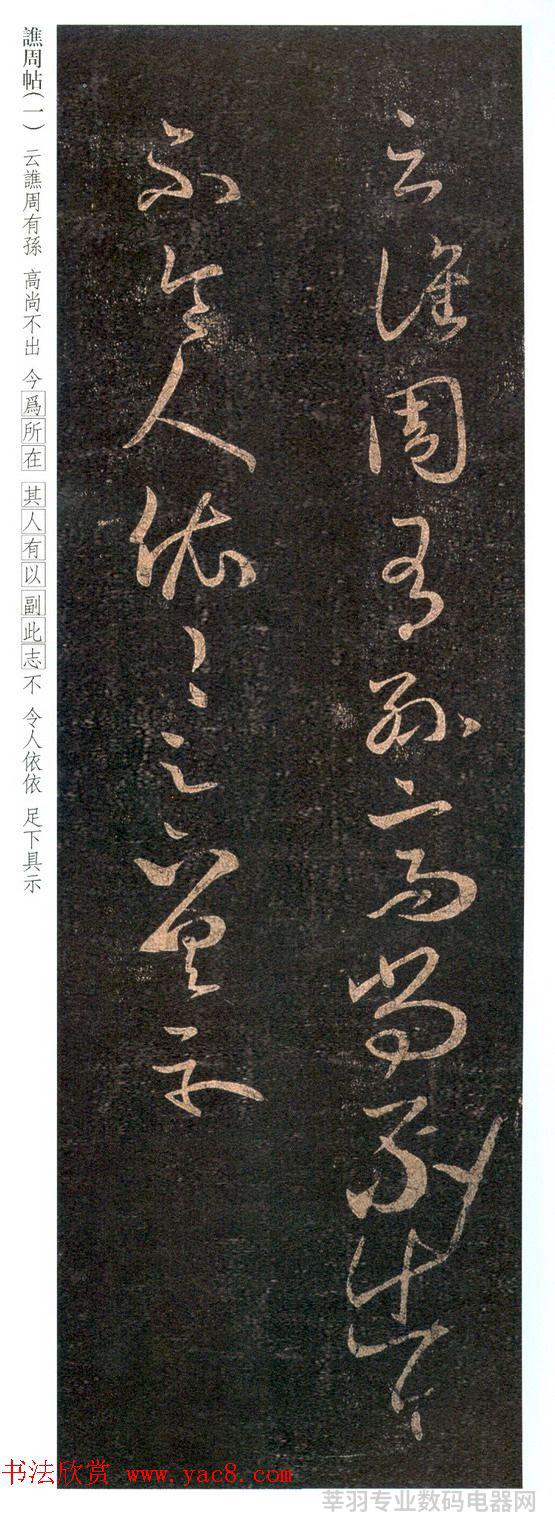 云譙周有孫高尚不出今
不令人依依足下具示
譙周帖(一) 云譙周有孫 高尚不出 今爲所在 其人有以副此志不 令人依依 足下具示
书法欣赏 www.yac8.com
莘羽专业数码电器网